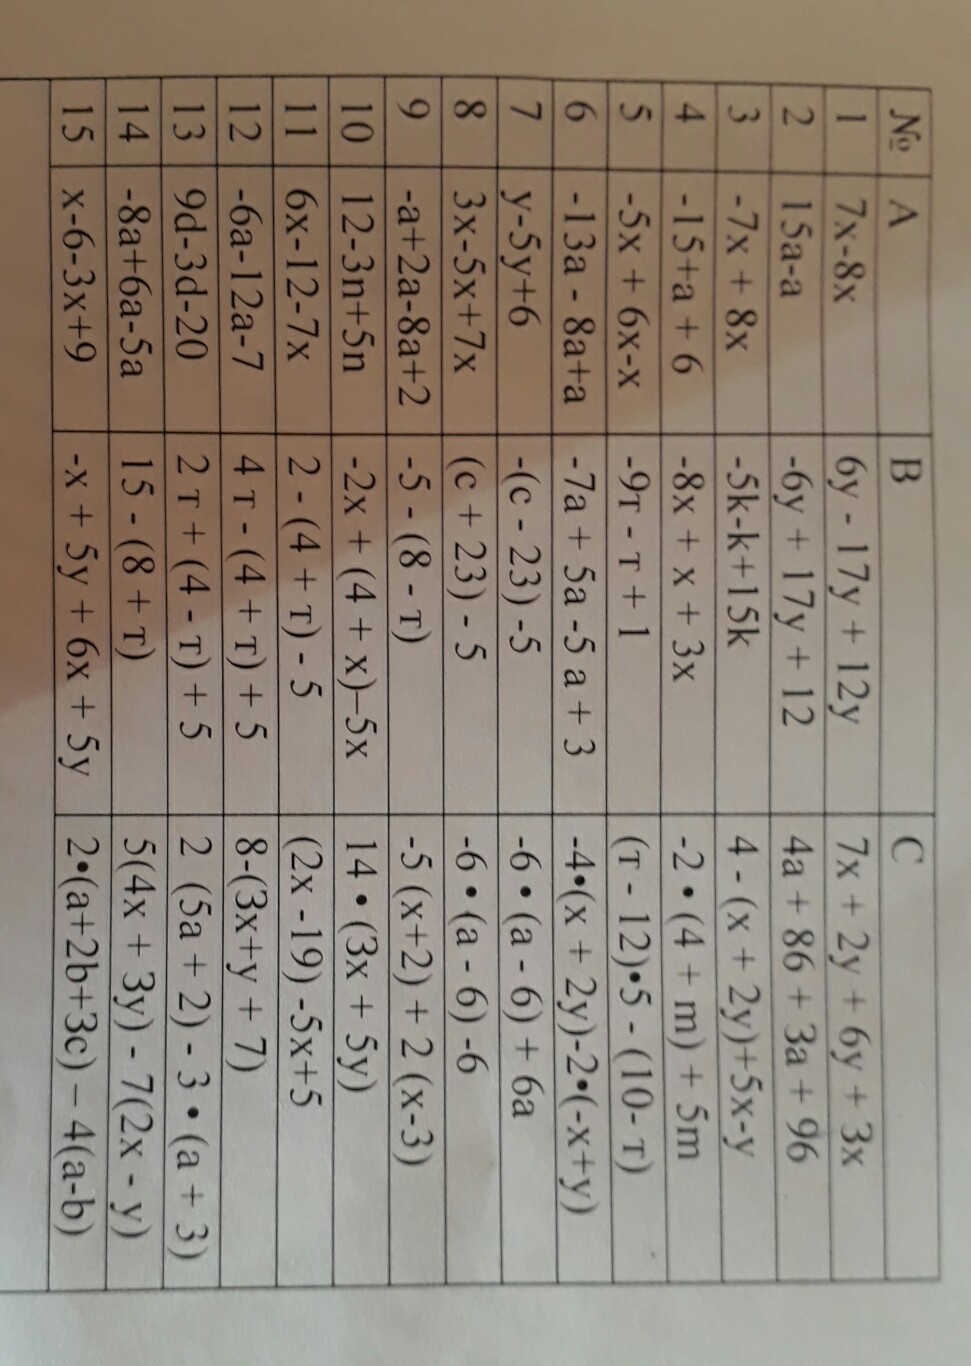 № A B C
1 7x-8x 6y - 17y + 12y 7x + 2y + 6y + 3x
2 15a-a -6y + 17y + 12 4a + 86 + 3a + 96
3 -7x + 8x -5k-k+15k 4 - (x + 2y)+5x-y
4 -15+a + 6 -8x + x + 3x -2 • (4 + m) + 5m
5 -5x + 6x-x -9т - т + 1 (т - 12)•5 - (10- т)
6 -13a - 8a+a -7a + 5a -5 a + 3 -4•(x + 2y)-2•(-x+y)
7 y-5y+6 -(c - 23) -5 -6 • (a - 6) + 6a
8 3x-5x+7x (c + 23) - 5 -6 • (a - 6) -6
9 -a+2a-8a+2 -5 - (8 - т) -5 (x+2) + 2 (x-3)
10 12-3n+5n -2x + (4 + x)–5x 14 • (3x + 5y)
11 6x-12-7x 2 - (4 + т) - 5 (2x -19) -5x+5
12 -6a-12a-7 4 т - (4 + т) + 5 8-(3x+y + 7)
13 9d-3d-20 2 т + (4 - т) + 5 2 (5a + 2) - 3 • (a + 3)
14 -8a+6a-5a 15 - (8 + т) 5(4x + 3y) - 7(2x - y)
15 x-6-3x+9 -x + 5y + 6x + 5y 2•(a+2b+3c) – 4(a-b)